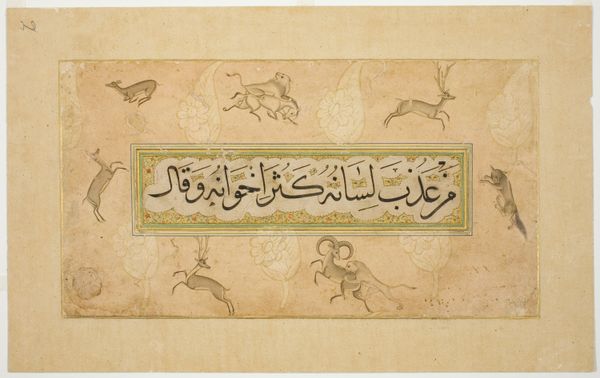 مَنْ عَذُبَ لِسَانُهُ كَثُرَ اخْوَانُهُ وَقَالَ